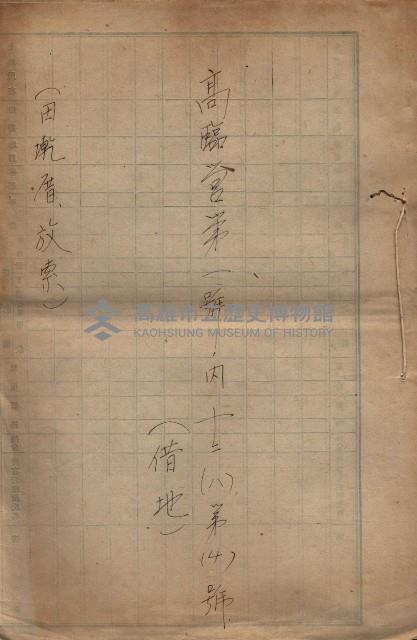 高臨營第一號ノ內十二(八)第(4)號
(借地)
(田墘厝、放索)
高雄市立歷史博物館
KAOHSIUNG MUSEUM OF HISTORY